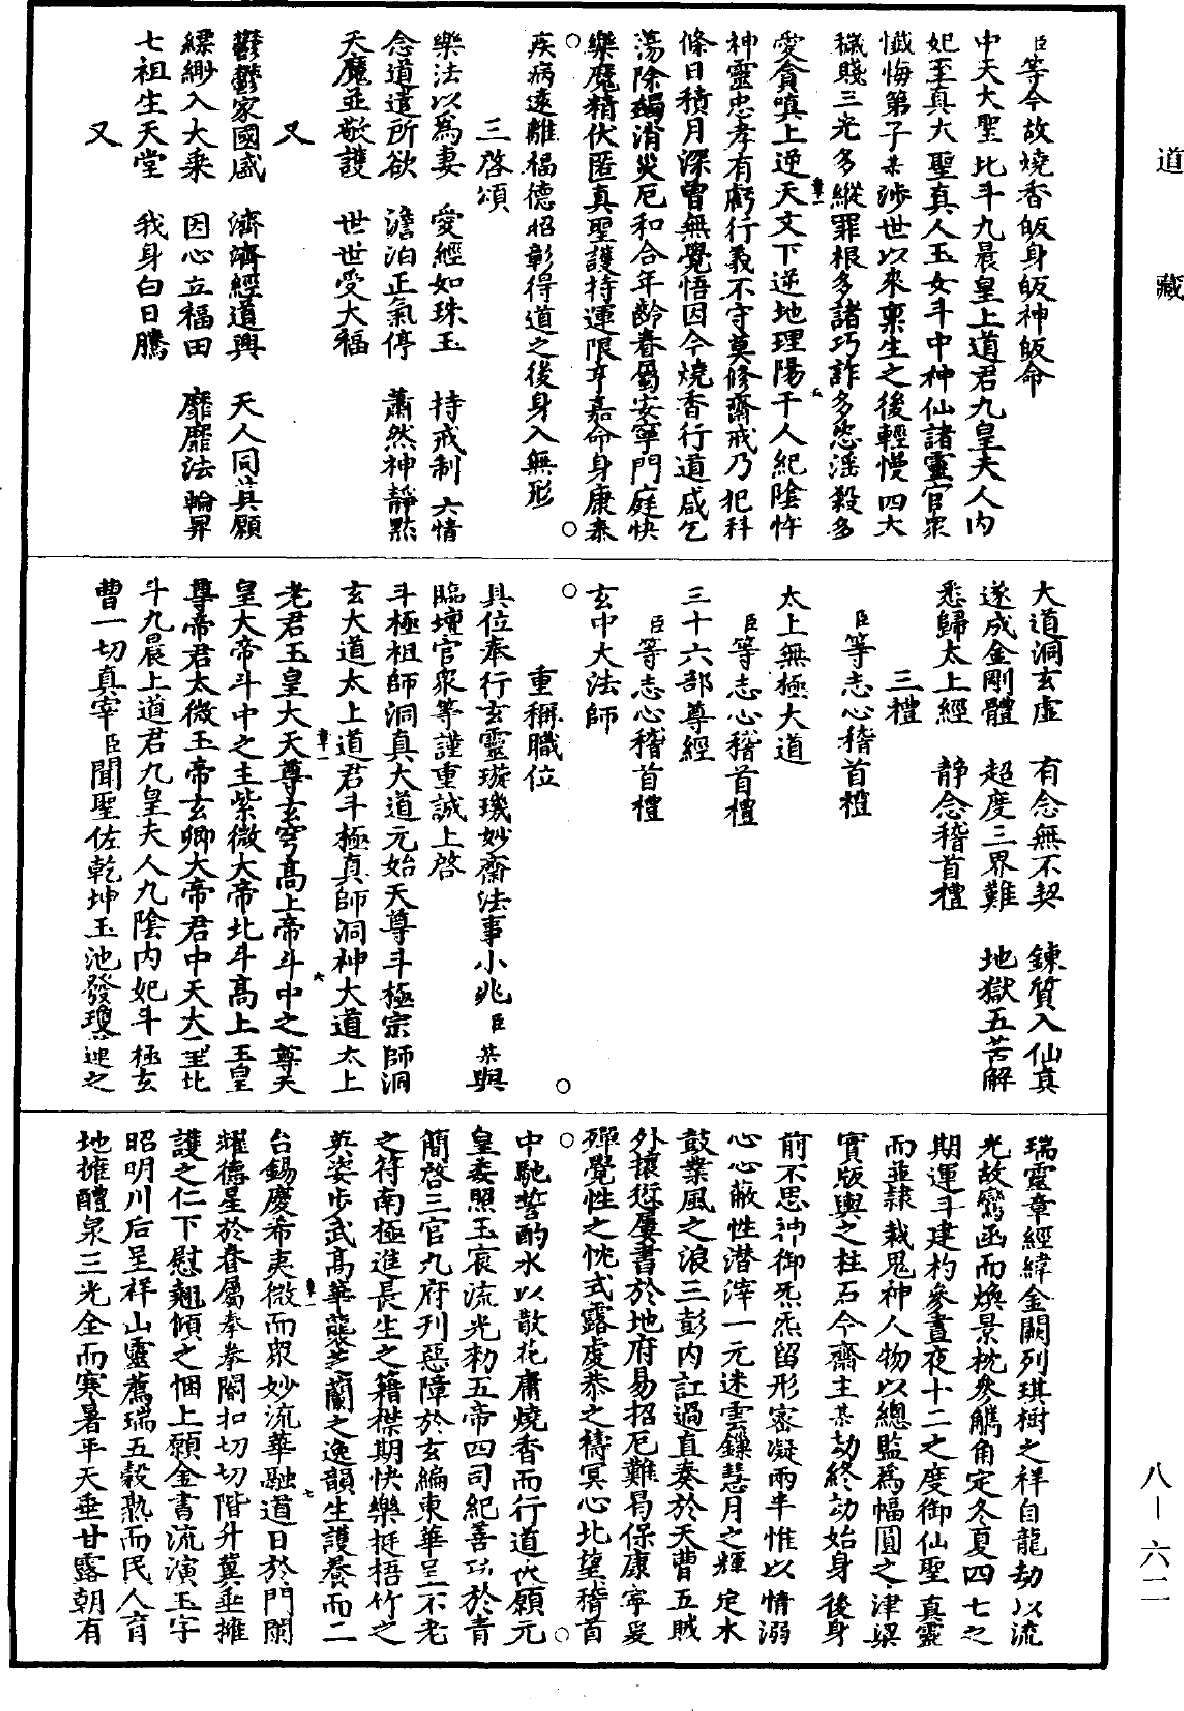 道藏
臣等今故燒香皈身皈神皈命
中天大聖北斗九晨皇上道君九皇夫人內
妃至真大聖真人玉女斗中神仙諸靈官衆
懺悔第子某涉世以來稟生之後輕慢四大
穢賤三光多縱罪根多諸巧詐多恣淫殺多
愛貪嗔上逆天文下逆地理陽干人紀陰忤
神靈忠孝有虧行義不守莫修齋戒乃犯科
條日積月深曾無覺悟因今燒香行道咸乞
蕩除蠲消災厄和合年齡眷屬安寧門庭快
樂魔精伏匿真聖護持運限亨嘉命身康泰
疾病遠離福德昭彰得道之後身入無形
三啓頌
樂法以為妻 愛經如珠玉 持戒制六情
念道遣所欲 澹泊正氣停 蕭然神靜默
天魔並敬護 世世受大福
又
鬱鬱家國盛 濟濟經道興 天人同其願
縹緲入大乘 因心立福田 靡靡法輪昇
七祖生天堂 我身白日騰
又
大道洞玄虛 有念無不契 鍊質入仙真
遂成金剛體 超度三界難 地獄五苦解
悉歸太上經 靜念稽首禮
三禮
臣等志心稽首禮
太上無極大道
臣等志心稽首禮
三十六部尊經
臣等志心稽首禮
玄中大法師
重稱職位
具位奉行玄靈璇璣妙齋法事小兆臣某與
臨壇官衆等謹重誠上啓
斗極祖師洞真大道元始天尊斗極宗師洞
玄大道太上道君斗極真師洞神大道太上
老君玉皇大天尊玄穹高上帝斗中之尊天
皇大帝斗中之主紫微大帝北斗高上玉皇
尊帝君太微玉帝玄卿大帝君中天大聖北
斗九晨上道君九皇夫人九陰內妃斗極玄
曹一切真宰臣聞聖佐乾坤玉池發瓊蓮之
瑞靈章經緯金闕列琪樹之祥自龍劫以流
光故鸞函而煥景枕參觿角定冬夏四七之
期運斗建杓參晝夜十二之度御仙聖真靈
而並隸裁鬼神人物以總監為幅圓之津梁
實版輿之柱石今齋主某劫終劫始身後身
前不思神御炁炁留形寄凝兩半惟以情溺
心心蔽性潛滓一元迷雲鏁慧月之輝定水
鼓業風之浪三彭內訌過直奏於天曹五賊
外攘愆屢書於地府易招厄難曷保康寧爰
殫覺性之忱式露虔恭之禱冥心北望稽首
中馳誓酌水以散花庸燒香而行道伏願元
皇委照玉宸流光勑五帝四司紀善功於青
簡啓三官九府刊惡障於玄編東華呈不老
之符南極進長生之籍襟期快樂挺梧竹之
英姿步武高華襲芝蘭之逸韻生護養而二
台錫慶希夷微而衆妙流華融道日於門闌
耀德星於眷屬拳拳閤扣切切階升冀垂擁
護之仁下慰翹傾之悃上願金書流演玉字
昭明川后呈祥山靈薦瑞五穀熟而民人育
地擁醴泉三光全而寒暑平天垂甘露朝有
八—六二